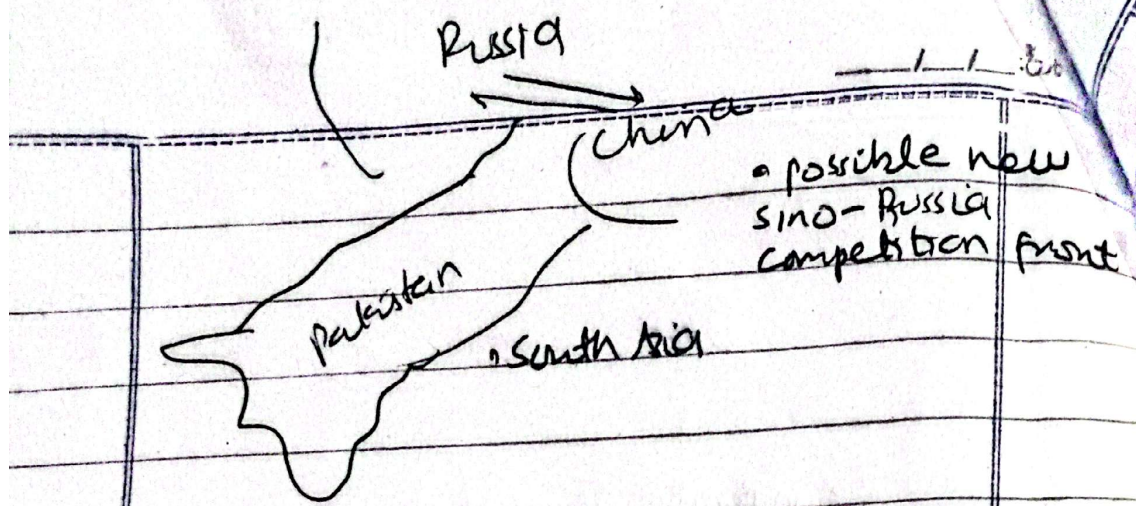 Russia
China
• possible new
sino-Russia
competition front
Pakistan
• South Asia